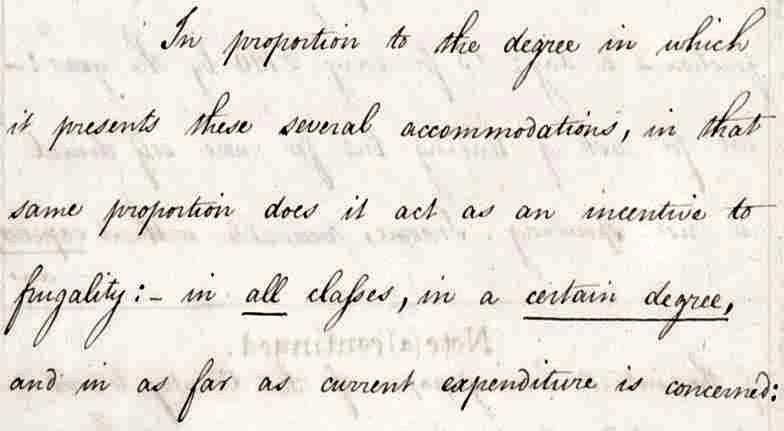 In proportion to the degree in which
it presents these several accommodations, in that
same proportion does it act as an incentive to
frugality:- in all claſses, in a certain degree,
and in as far as current expenditure is concerned: